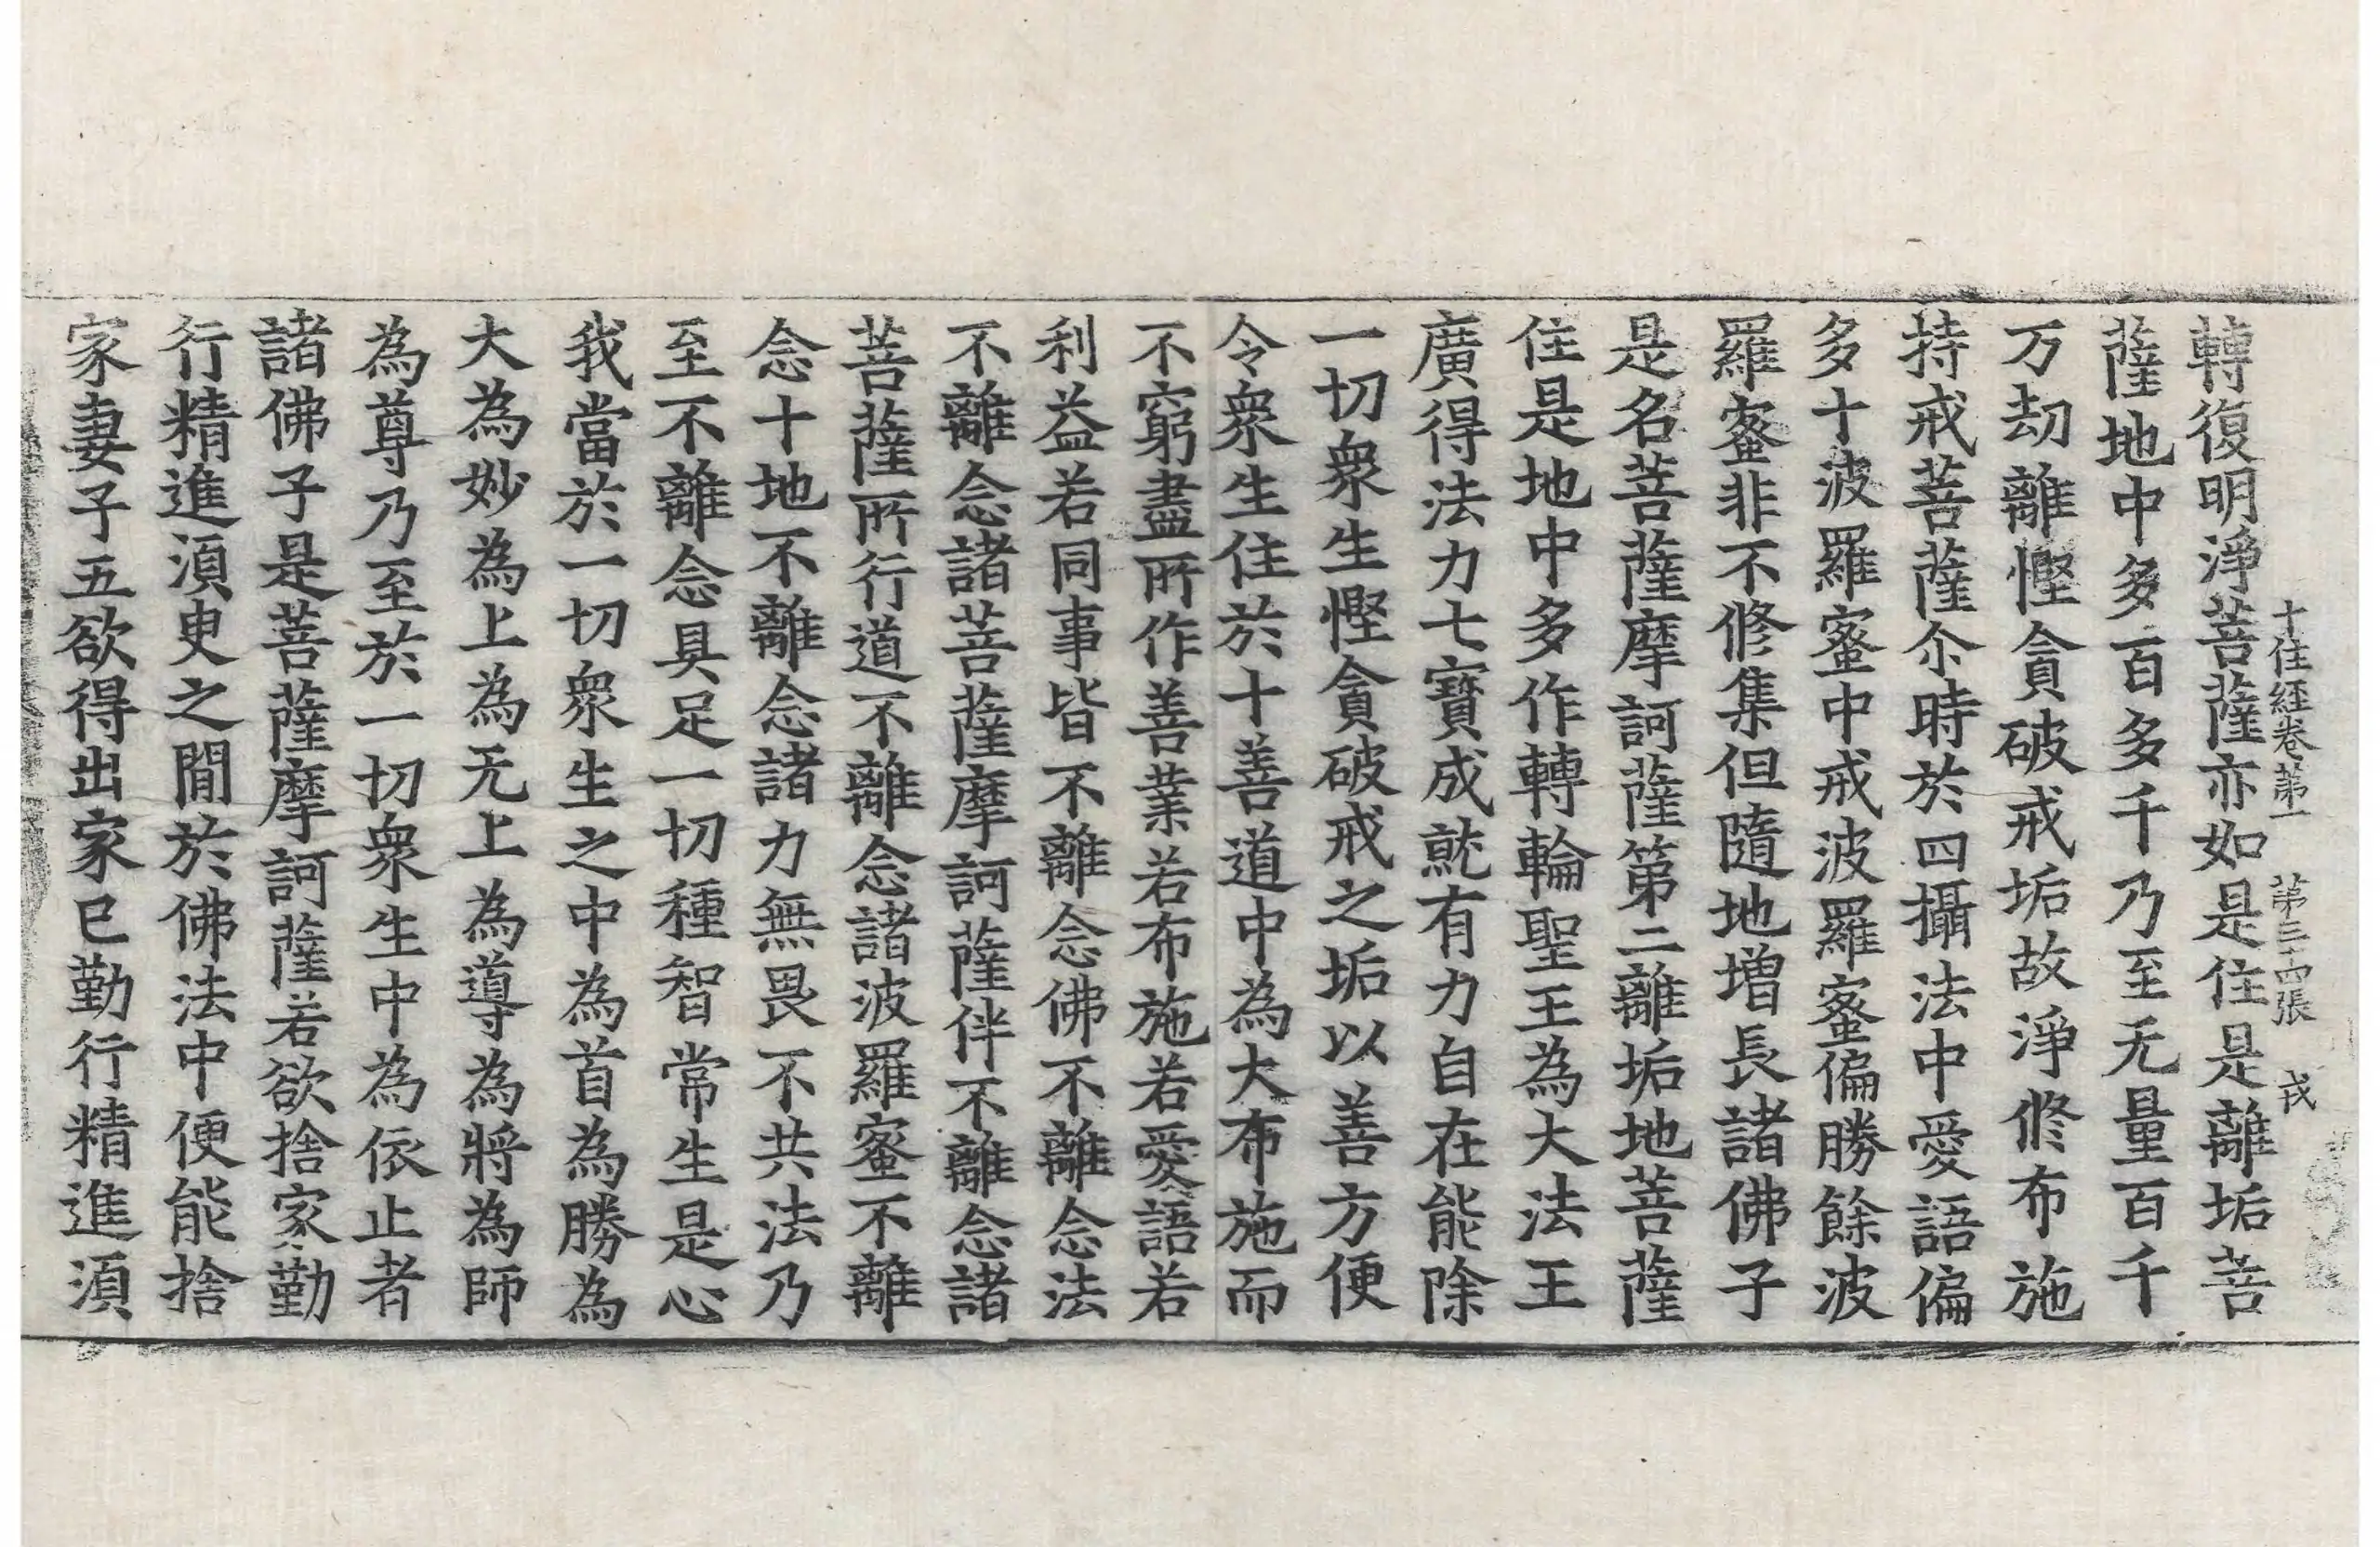 十住經卷第一 第三十四張 戎
轉復明淨菩薩亦如是住是離垢菩
薩地中多百多千乃至无量百千
万劫離慳貪破戒垢故淨修布施
持戒菩薩尒時於四攝法中愛語偏
多十波羅蜜中戒波羅蜜偏勝餘波
羅蜜非不修集但隨地增長諸佛子
是名菩薩摩訶薩第二離垢地菩薩
住是地中多作轉輪聖王為大法王
廣得法力七寶成就有力自在能除
一切衆生慳貪破戒之垢以善方便
令衆生住於十善道中為大布施而
不窮盡所作善業若布施若愛語若
利益若同事皆不離念佛不離念法
不離念諸菩薩摩訶薩伴不離念諸
菩薩所行道不離念諸波羅蜜不離
念十地不離念諸力無畏不共法乃
至不離念具足一切種智常生是心
我當於一切衆生之中為首為勝為
大為妙為上為无上為導為將為師
為尊乃至於一切衆生中為依止者
諸佛子是菩薩摩訶薩若欲捨家勤
行精進湏臾之閒於佛法中便能捨
家妻子五欲得出家已勤行精進湏